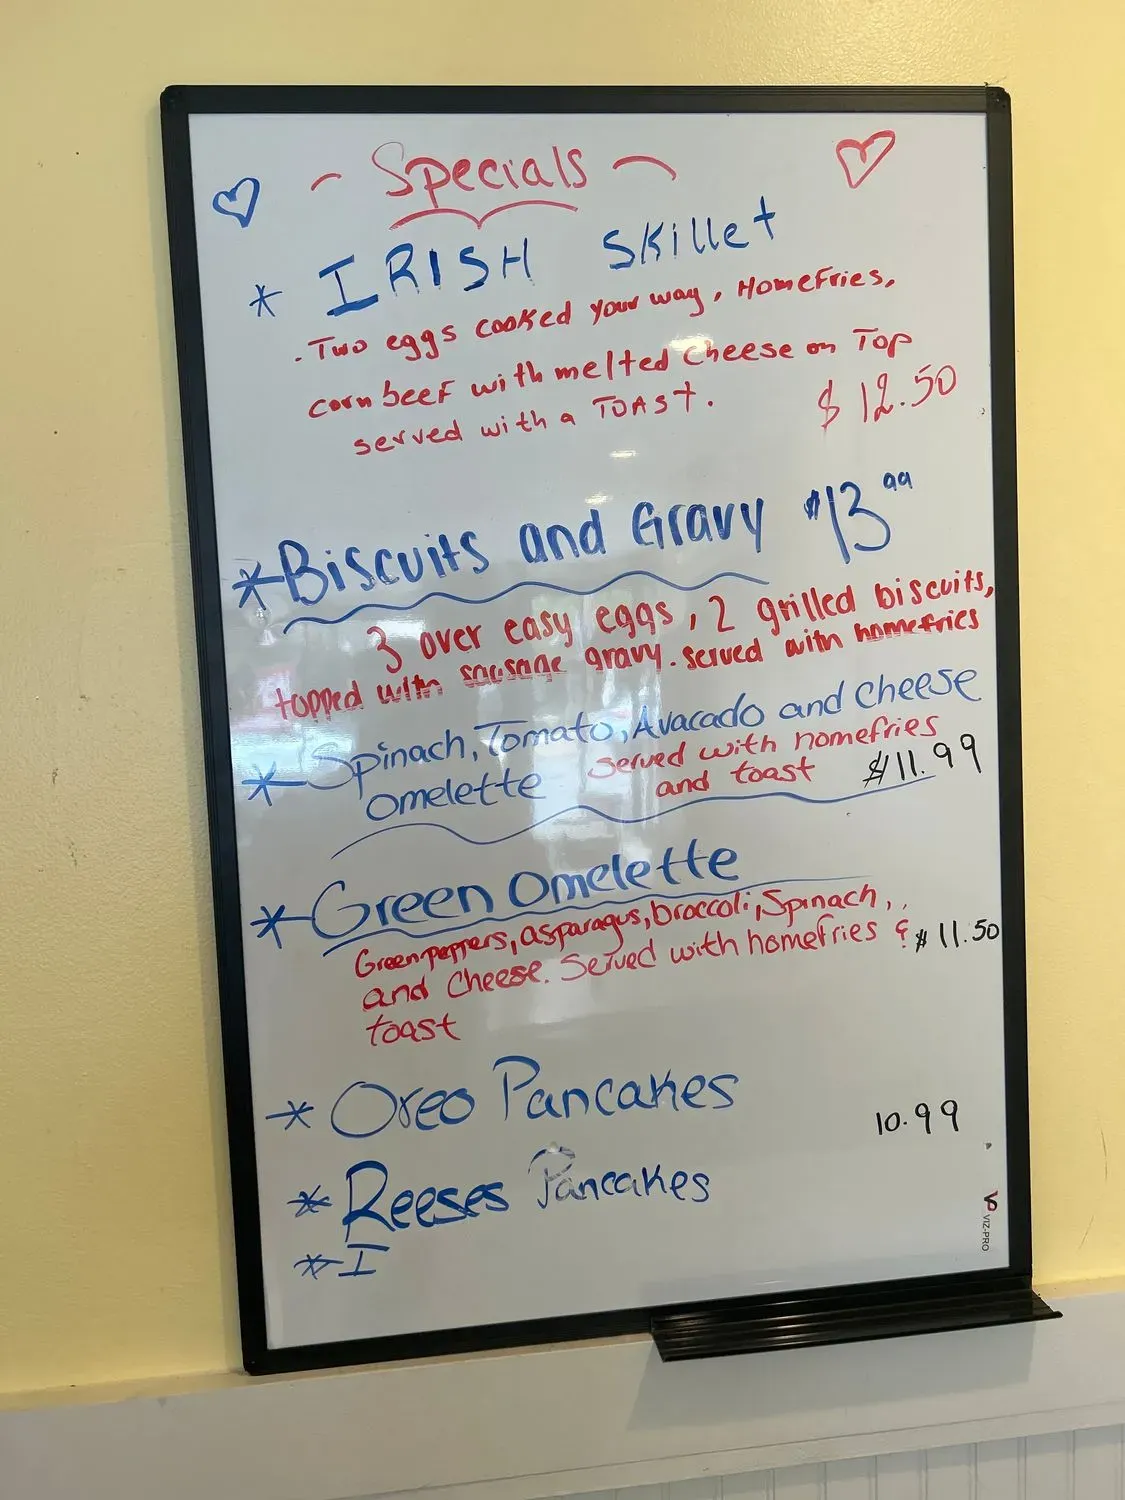 ~ Specials ~
* IRISH Skillet
. Two eggs cooked your way, Homefries,
corn beef with melted cheese on Top
served with a TOAST.
$ 12.50
* Biscuits and Gravy $13.99
3 over easy eggs, 2 grilled biscuits,
topped with sausage gravy. served with homefries
* Spinach, Tomato, Avacado and cheese
omelette served with homefries
and toast $11.99
* Green Omelette
Greenpeppers, asparagus, broccoli, Spinach,
and Cheese. Served with homefries & $11.50
toast
* Oreo Pancakes
10.99
* Reeses Pancakes
* I
VIZ-PRO